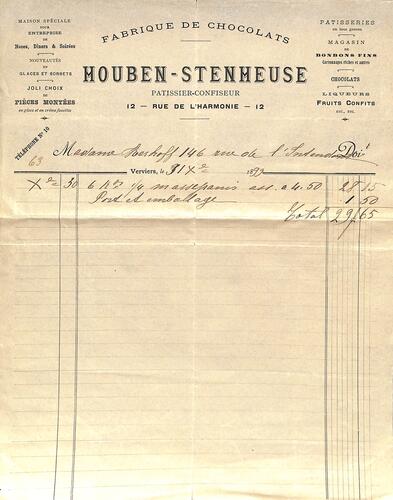 FABRIQUE DE CHOCOLATS
MAISON SPÉCIALE
POUR
ENTREPRISE
DE
Noces, Dîners & Soirées
NOUVEAUTÉS
EN
GLACES ET SORBETS
JOLI CHOIX
DE
PIÈCES MONTÉES
en glace et en crème fouettée
HOUBEN-STENHEUSE
PATISSIER-CONFISEUR
12 — RUE DE L'HARMONIE — 12
PATISSERIES
en tous genres
MAGASIN
DE
BONBONS FINS
Cartonnages riches et autres
CHOCOLATS
LIQUEURS
FRUITS CONFITS
etc., etc.
TÉLÉPHONE No 10
63
Madame 146 rue de l'Intend Doit
Verviers, le 31 Xe 189
Xe 30 6 1/4 massepains ass. a 4.50 28 15
Port et emballage 1 50
Total 29 65